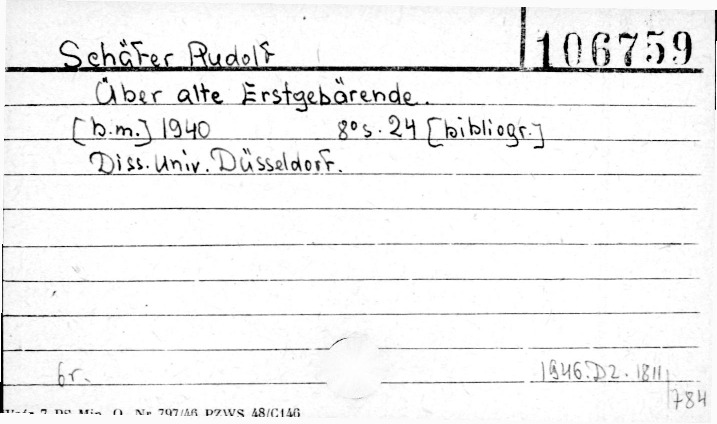 Schäfer Rudolf
106759
Über alte Erstgebärende.
[b.m.] 1940 8° s. 24 [bibliogr.]
Diss. Univ. Düsseldorf.
br.
1946.D2.1811
784
Nr 797/46 PZWS 48/C146